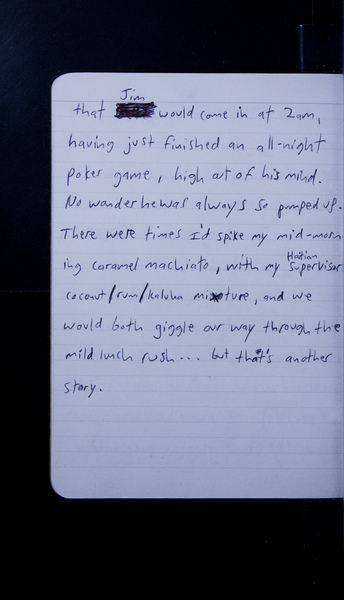 Jim
that would come in at 2am,
having just finished an all-night
poker game, high out of his mind.
No wonder he was always so pumped up.
There were times I'd spike my mid-morn
ing caramel machiato, with my Haitian supervisor
coconut/rum/kaluha mixture, and we
would both giggle our way through the
mild lunch rush... but that's another
story.